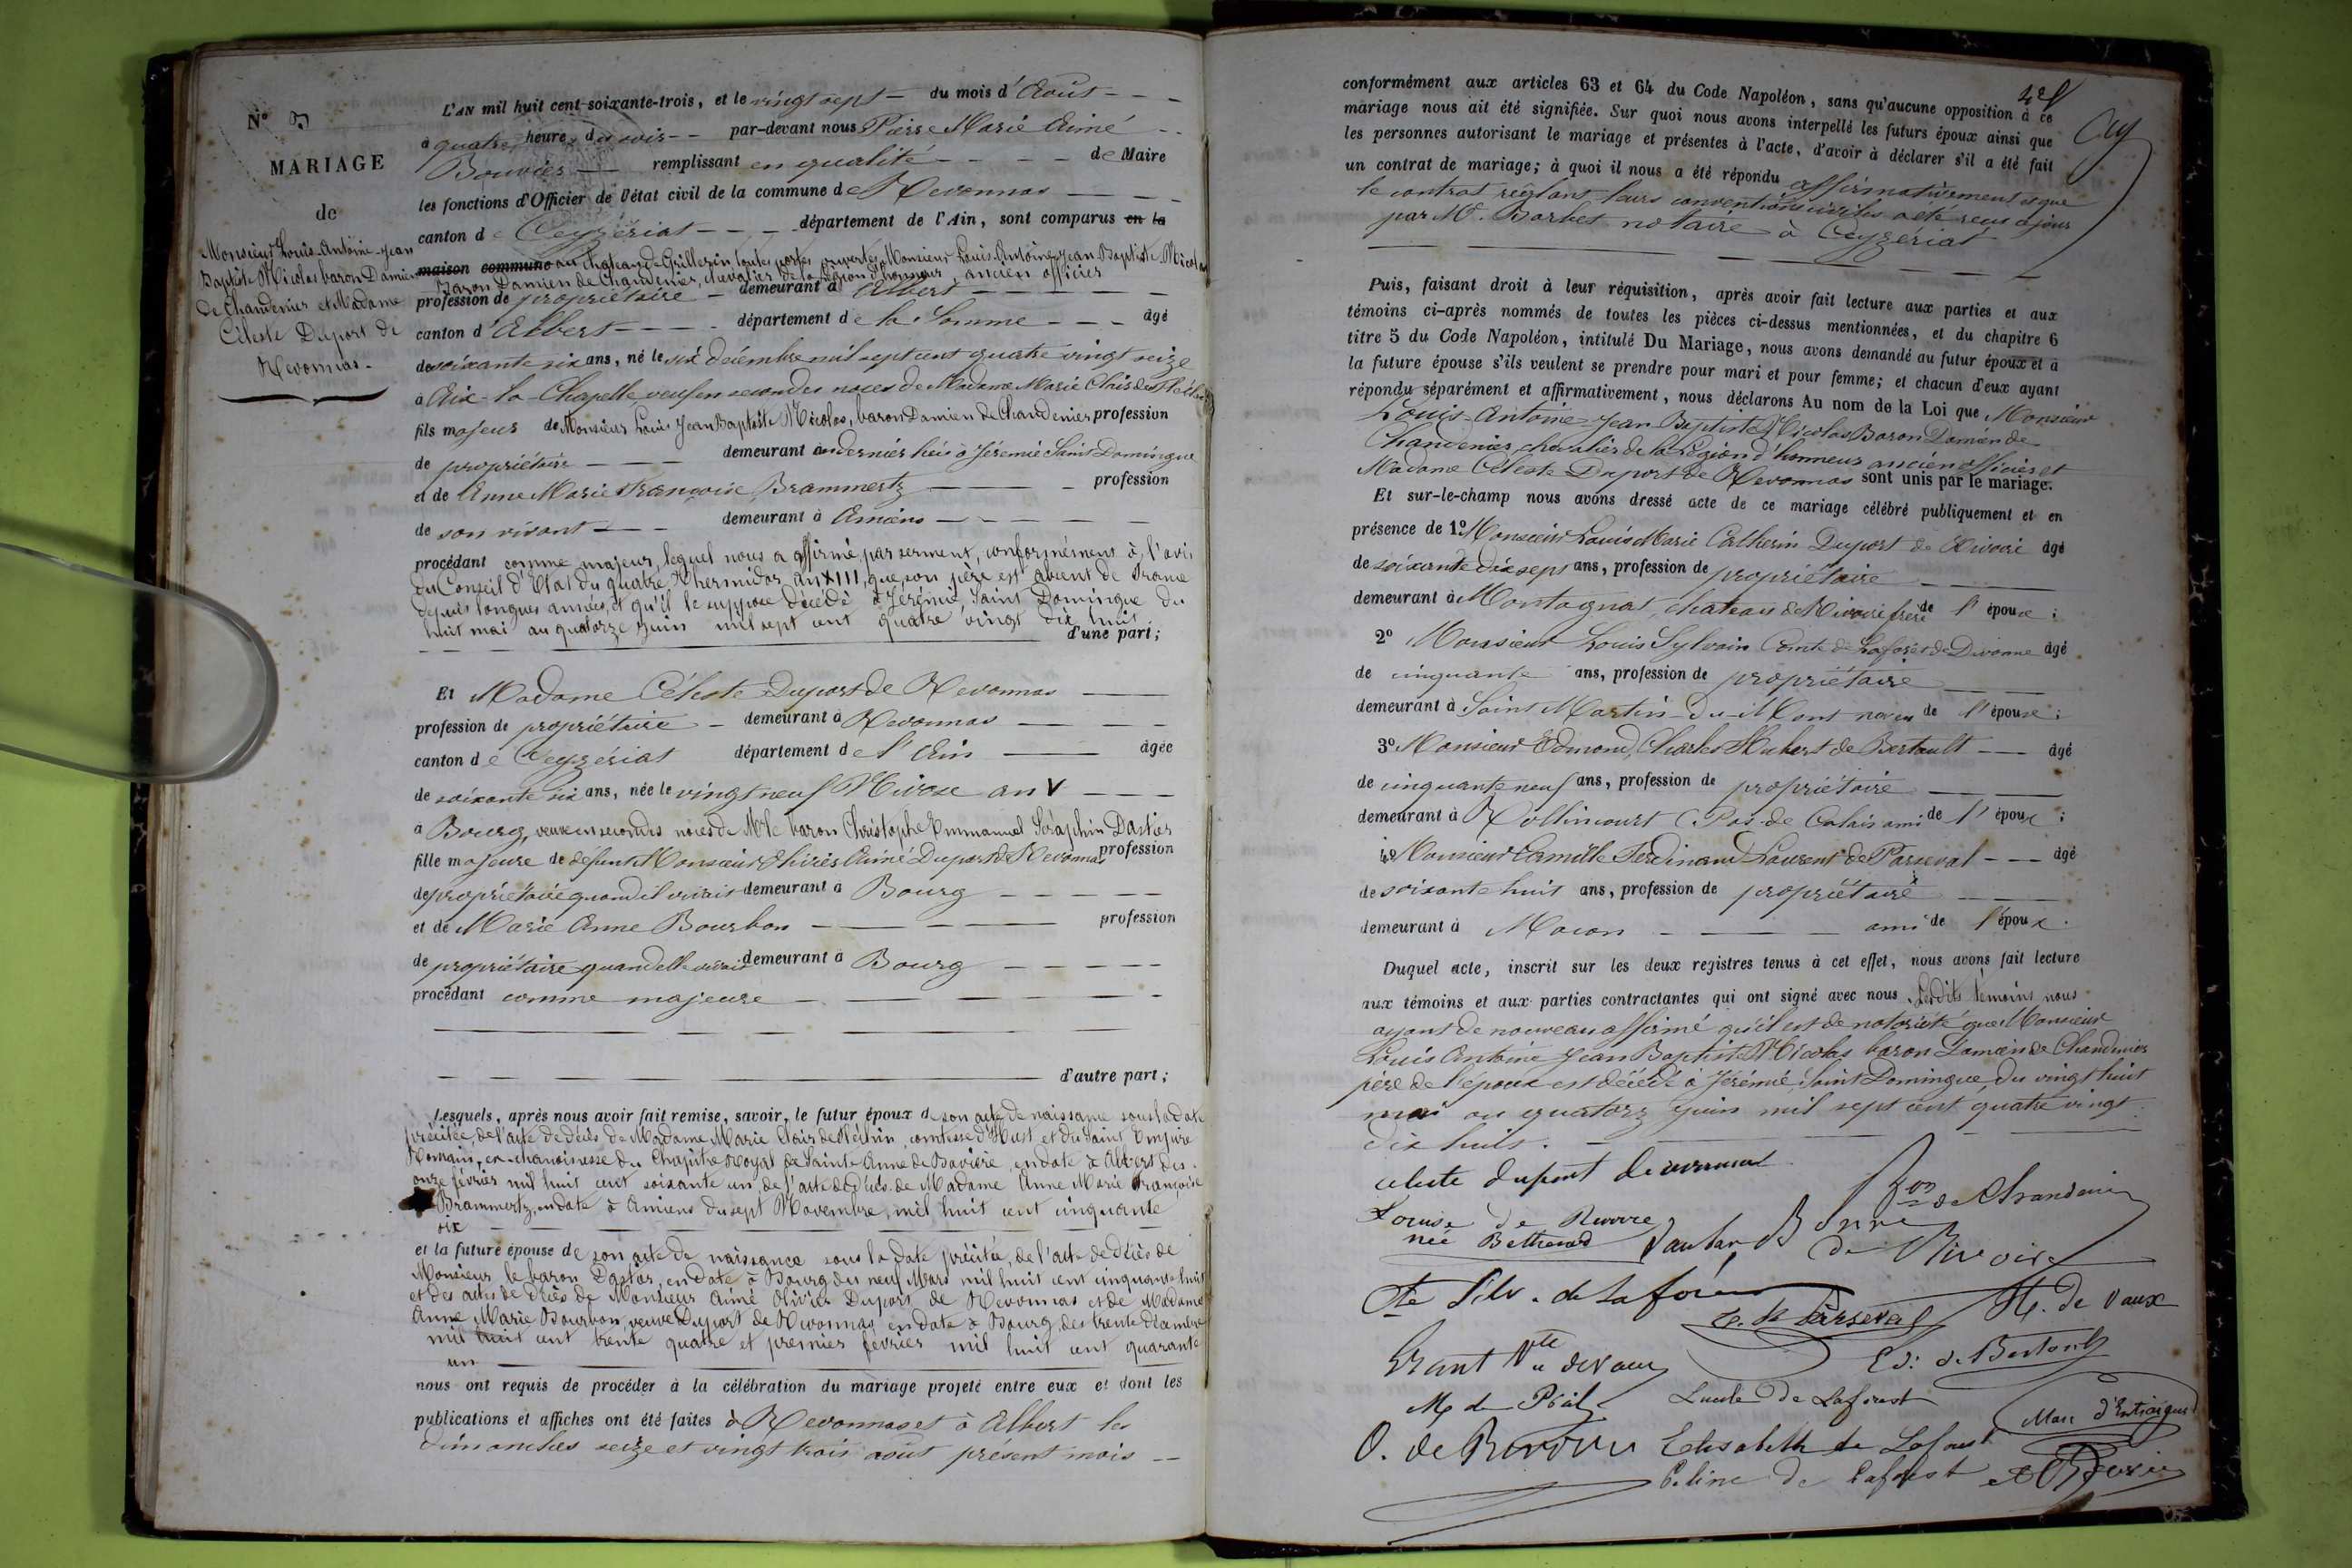 N° 3
MARIAGE
de
Monsieur Louis-Antoine-Jean
Baptiste Nicolas baron Damien
de Chandenier et Madame
Céleste Duport de
Revonnas.
L'AN mil huit cent-soixante-trois, et le vingt sept du mois d'Août
à quatre heures du soir par-devant nous Pierre Marie Aimé
Bouvier remplissant en qualité de Maire
les fonctions d'Officier de l'état civil de la commune de Revonnas
canton de Ceyzériat département de l'Ain, sont comparus en la
maison commune au chateau de Grillerin toutes portes ouvertes Monsieur Louis Antoine Jean Baptiste Nicolas
Baron Damien de Chandenier, chevalier de la Légion d'honneur, ancien officier
profession de propriétaire demeurant à Albert
canton d'Albert département de la Somme âgé
de soixante six ans, né le six décembre mil sept cent quatre vingt seize
à Aix-la-Chapelle, veuf en secondes noces de Madame Marie Clair de
fils majeur de Monsieur Louis Jean Baptiste Nicolas, baron Damien de Chandenier profession
de propriétaire demeurant en dernier lieu à Jérémie Saint Domingue
et de Anne Marie Françoise Brammertz profession
de son vivant demeurant à Amiens
procédant comme majeur, lequel nous a affirmé par serment, conformément à l'avis
du Conseil d'Etat du quatre Thermidor an XIII, que son père est absent de France
depuis longues années, et qu'il le suppose décédé à Jérémie, Saint Domingue du
huit mai au quatorze juin mil sept cent quatre vingt dix huit.
d'une part;
Et Madame Céleste Duport de Revonnas
profession de propriétaire demeurant à Revonnas
canton de Ceyzériat département de l'Ain âgée
de soixante six ans, née le vingt neuf Nivose an V
à Bourg, veuve en secondes noces de Mr le baron Christophe Emmanuel Séraphin Dastier
fille majeure de défunt Monsieur Olivier Aimé Duport de Revonnas profession
de propriétaire quand il vivait demeurant à Bourg
et de Marie Anne Bourbon profession
de propriétaire quand elle vivait demeurant à Bourg
procédant comme majeure
d'autre part;
Lesquels, après nous avoir fait remise, savoir, le futur époux de son acte de naissance sous la date
précitée, de l'acte de décès de Madame Marie Clair de comtesse d'Hust et du Saint Empire
Romain, ex-chanoinesse du Chapitre Royal de Sainte Anne de Bavière, en date à Albert du
onze février mil huit cent soixante un de l'acte de décès de Madame Anne Marie Françoise
Brammertz, en date à Amiens du sept Novembre, mil huit cent cinquante
six
et la future épouse de son acte de naissance sous la date précitée, de l'acte de décès de
Monsieur le baron Dastier, en date à Bourg du neuf Mars mil huit cent cinquante huit
et des actes de décès de Monsieur Aimé Olivier Duport de Revonnas et de Madame
Anne Marie Bourbon, veuve Duport de Revonnas, en date à Bourg, des trente décembre
mil huit cent trente quatre et premier février mil huit cent quarante
un
nous ont requis de procéder à la célébration du mariage projeté entre eux et dont les
publications et affiches ont été faites à Revonnas et à Albert les
dimanches seize et vingt trois août présent mois
conformément aux articles 63 et 64 du Code Napoléon, sans qu'aucune opposition à ce
mariage nous ait été signifiée. Sur quoi nous avons interpellé les futurs époux ainsi que
les personnes autorisant le mariage et présentes à l'acte, d'avoir à déclarer s'il a été fait
un contrat de mariage; à quoi il nous a été répondu affirmativement et que
le contrat réglant leurs conventions civiles a été reçu ce jour
par Me. Barbet notaire à Ceyzériat
Puis, faisant droit à leur réquisition, après avoir fait lecture aux parties et aux
témoins ci-après nommés de toutes les pièces ci-dessus mentionnées, et du chapitre 6
titre 5 du Code Napoléon, intitulé Du Mariage, nous avons demandé au futur époux et à
la future épouse s'ils veulent se prendre pour mari et pour femme; et chacun d'eux ayant
répondu séparément et affirmativement, nous déclarons Au nom de la Loi que Monsieur
Louis-Antoine-Jean Baptiste Nicolas Baron Damien de
Chandenier, chevalier de la Légion d'honneur ancien officier et
Madame Céleste Duport de Revonnas sont unis par le mariage.
Et sur-le-champ nous avons dressé acte de ce mariage célébré publiquement et en
présence de 1° Monsieur Louis Marie Catherin Duport de Rivoire âgé
de soixante dix sept ans, profession de propriétaire
demeurant à Montagnat, chateau de Rivoire frère de l'épouse;
2° Monsieur Louis Sylvain Comte de Laforêt de Divonne âgé
de cinquante ans, profession de propriétaire
demeurant à Saint Martin-du-Mont neveu de l'épouse;
3° Monsieur Edmond, Charles Hubert de Bertoult âgé
de cinquante neuf ans, profession de propriétaire
demeurant à Rollincourt (Pas-de-Calais ami de l'époux;
4° Monsieur Camille Ferdinand Laurent de Parseval âgé
de soixante huit ans, profession de propriétaire
demeurant à Macon ami de l'époux.
Duquel acte, inscrit sur les deux registres tenus à cet effet, nous avons fait lecture
aux témoins et aux parties contractantes qui ont signé avec nous. Lesdits témoins nous
ayant de nouveau affirmé qu'il est de notoriété que Monsieur
Louis Antoine Jean Baptiste Nicolas baron Damien de Chandenier
père de l'époux est décédé à Jérémie, Saint Domingue, du vingt huit
mai au quatorze juin mil sept cent quatre vingt
dix huit.
celeste duport de revonnas
Bon de Chandenier
Louise de Rivoire
née
de Rivoire
Cte Silv. de Laforest
C. de Parseval
H. de Vaux
Ed. de Bertoult
Lucile de Laforest
Marc d'Entraigues
O. de Rivoire
Elisabeth de Laforest
Céline de Laforest
Bouvier